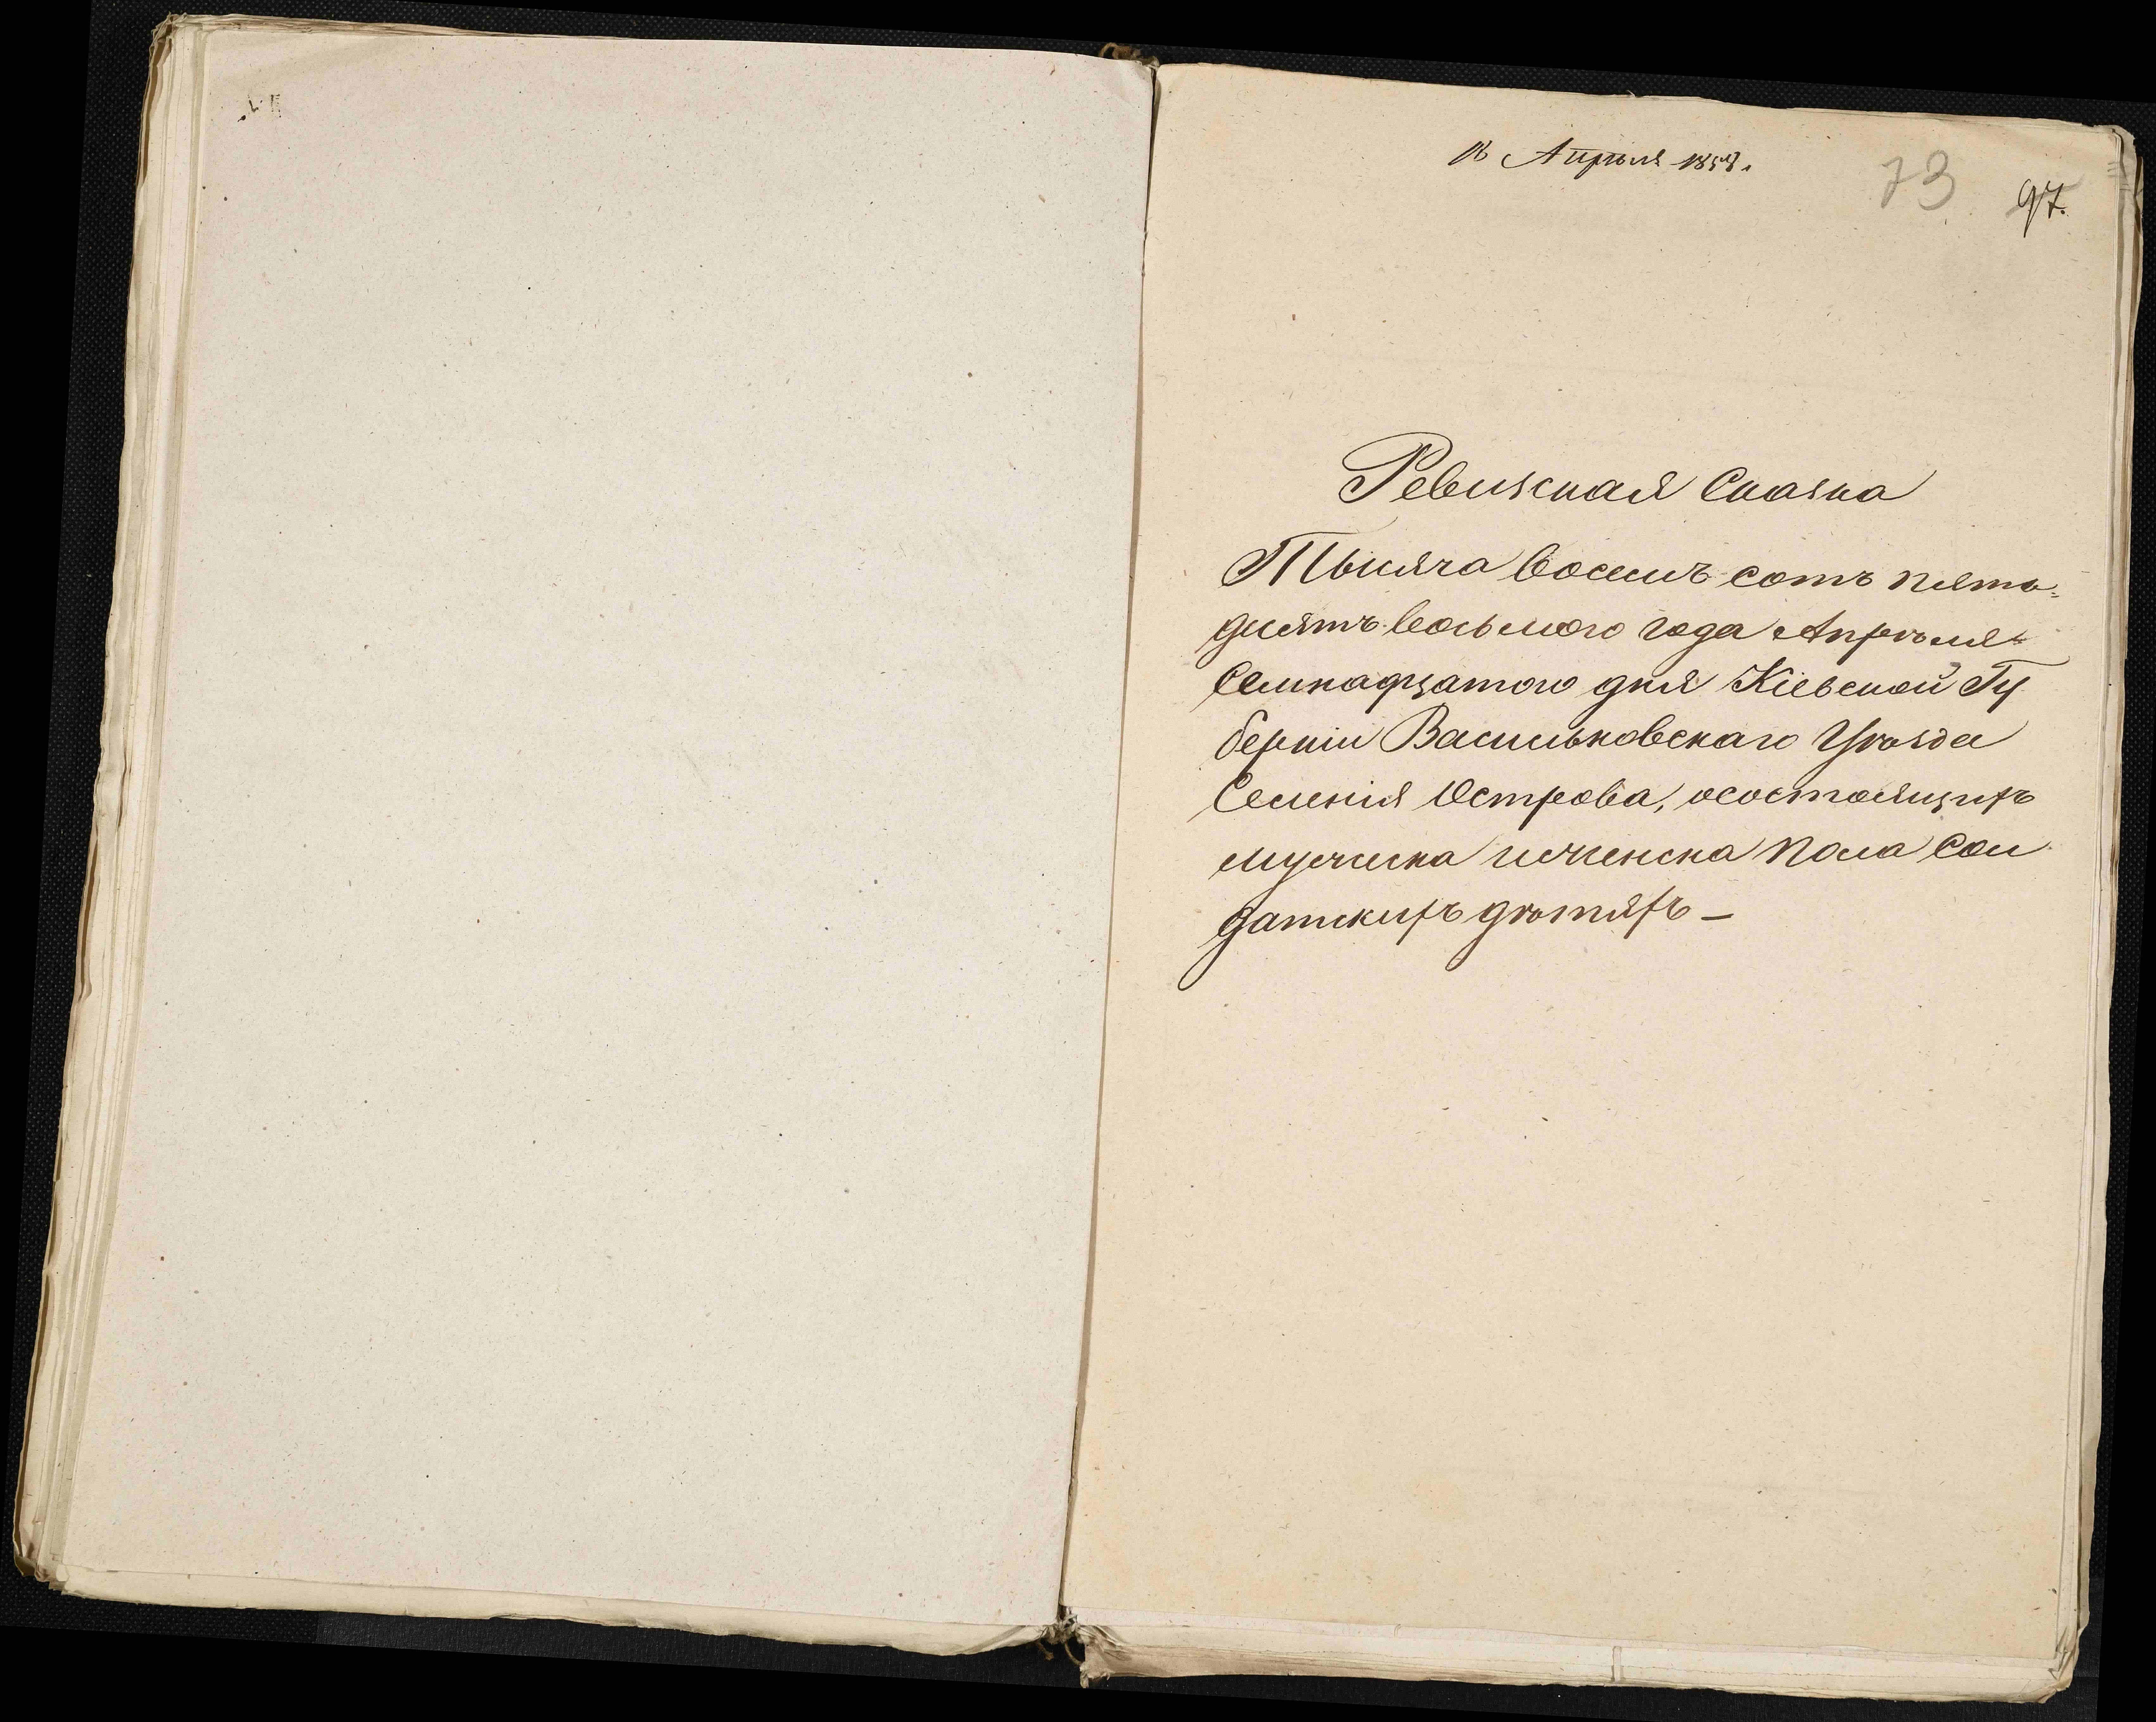 18 Апрѣля 1858.
73
97.
Ревизская Сказка
Тысяча восемъ сотъ пять=
десятъ восьмого года Апрѣля
Семнадцатого дня Кіевской Гу
берніи Васильковскаго Уѣзда
Селенія Острова, осостоящихъ
мужеска иженска пола Сол
датскихъ дѣтяхъ —